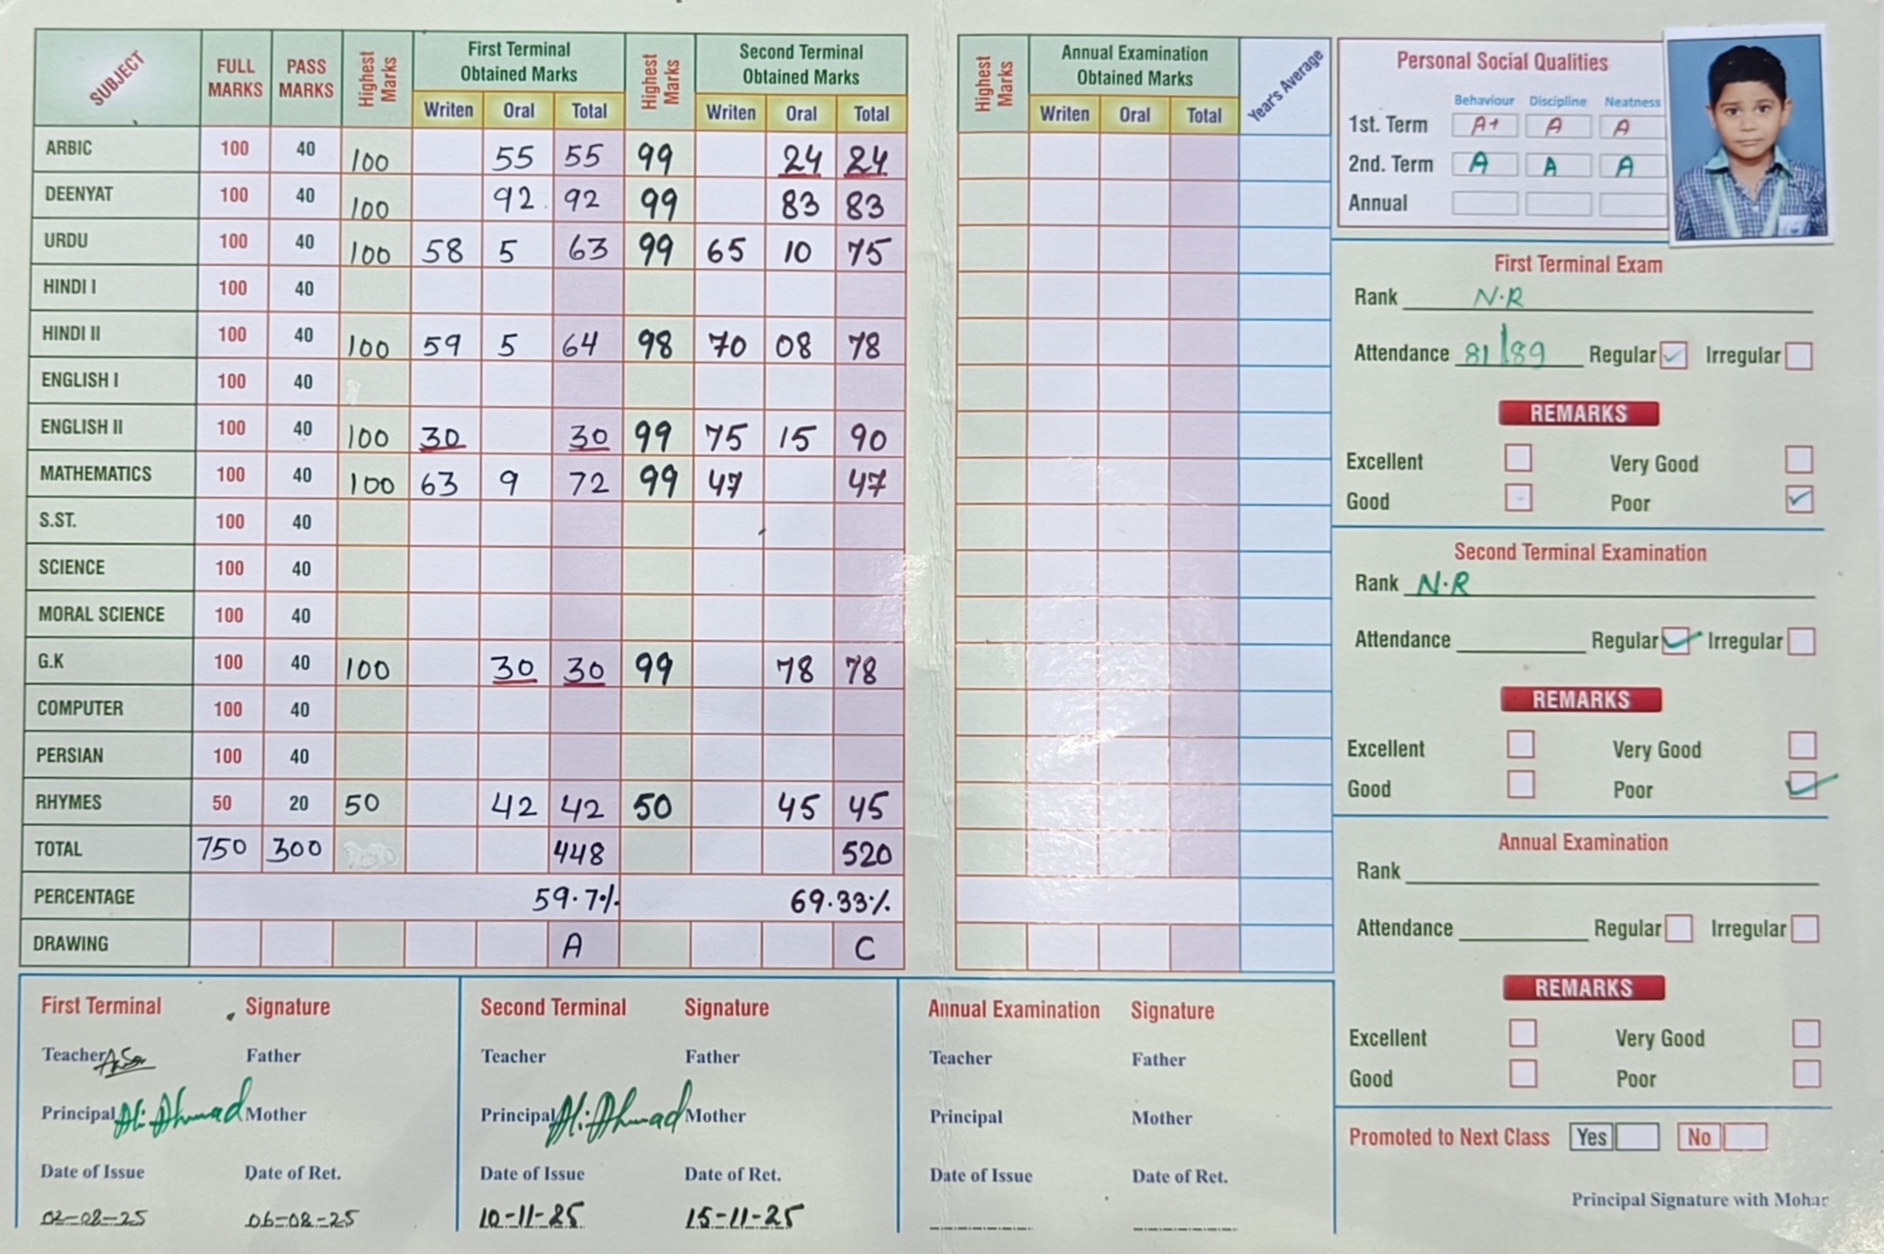 SUBJECT FULL MARKS PASS MARKS Highest Marks First Terminal Obtained Marks Highest Marks Second Terminal Obtained Marks
Writen Oral Total Writen Oral Total
ARBIC 100 40 100 55 55 99 24 24
DEENYAT 100 40 100 92 92 99 83 83
URDU 100 40 100 58 5 63 99 65 10 75
HINDI I 100 40
HINDI II 100 40 100 59 5 64 98 70 08 78
ENGLISH I 100 40
ENGLISH II 100 40 100 30 30 99 75 15 90
MATHEMATICS 100 40 100 63 9 72 99 47 47
S.ST. 100 40
SCIENCE 100 40
MORAL SCIENCE 100 40
G.K 100 40 100 30 30 99 78 78
COMPUTER 100 40
PERSIAN 100 40
RHYMES 50 20 50 42 42 50 45 45
TOTAL 750 300 448 520
PERCENTAGE 59.7% 69.33%
DRAWING A C
Highest Marks Annual Examination Obtained Marks Year's Average
Writen Oral Total
Personal Social Qualities
Behaviour Discipline Neatness
1st. Term A+ A A
2nd. Term A A A
Annual
First Terminal Exam
Rank N.R
Attendance 81/89 Regular Irregular
REMARKS
Excellent Very Good
Good Poor
Second Terminal Examination
Rank N.R
Attendance Regular Irregular
REMARKS
Excellent Very Good
Good Poor
Annual Examination
Rank
Attendance Regular Irregular
REMARKS
Excellent Very Good
Good Poor
Promoted to Next Class Yes No
Principal Signature with Mohar
First Terminal Signature
Teacher Father
Principal Ali Ahmad Mother
Date of Issue Date of Ret.
02-08-25 06-08-25
Second Terminal Signature
Teacher Father
Principal Ali Ahmad Mother
Date of Issue Date of Ret.
10-11-25 15-11-25
Annual Examination Signature
Teacher Father
Principal Mother
Date of Issue Date of Ret.